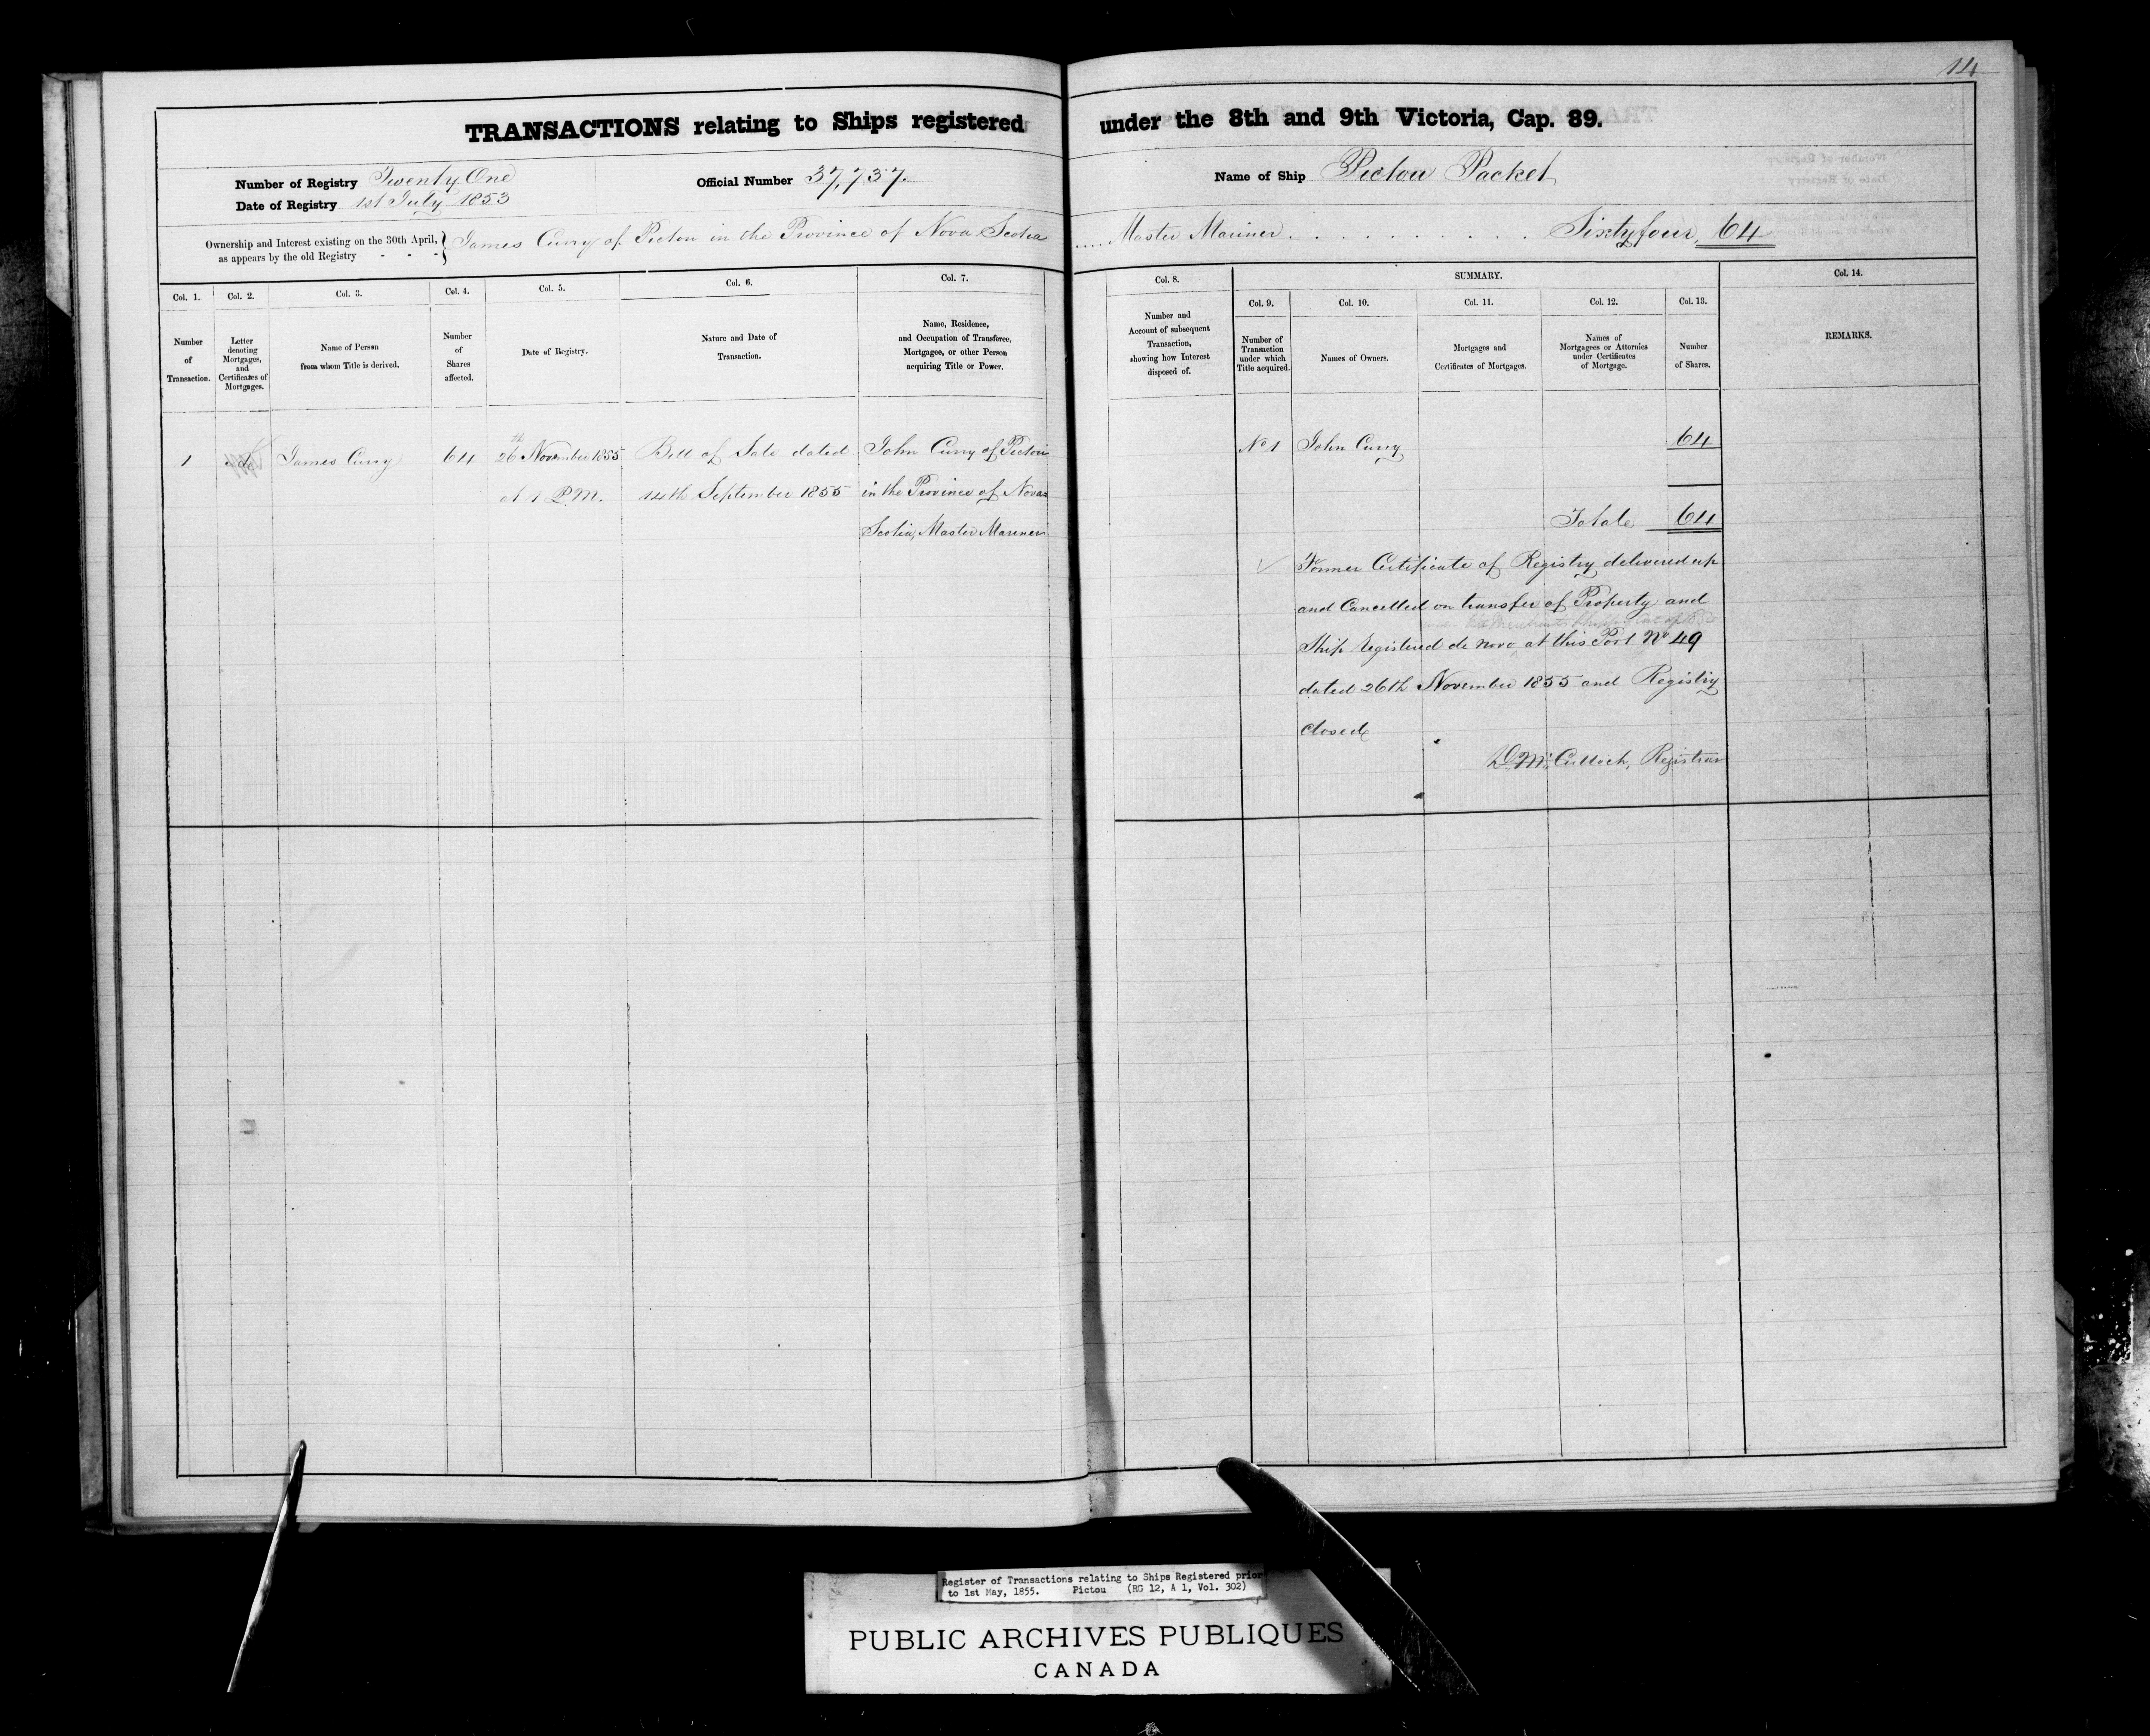 14
TRANSACTIONS relating to Ships registered under the 8th and 9th Victoria, Cap. 89.
Number of Registry Twenty One
Date of Registry 1st July 1853
Official Number 37,737.
Name of Ship Pictou Packet
Ownership and Interest existing on the 30th April, as appears by the old Registry - - - } James Curry of Pictou in the Province of Nova Scotia .... Master Mariner . . . . . . . . . . . Sixtyfour, 64
Col. 1.
Number of Transaction.
Col. 2.
Letter denoting Mortgages, and Certificates of Mortgages.
Col. 3.
Name of Person from whom Title is derived.
Col. 4.
Number of Shares affected.
Col. 5.
Date of Registry.
Col. 6.
Nature and Date of Transaction.
Col. 7.
Name, Residence, and Occupation of Transferee, Mortgagee, or other Person acquiring Title or Power.
Col. 8.
Number and Account of subsequent Transaction, showing how Interest disposed of.
SUMMARY.
Col. 9.
Number of Transaction under which Title acquired.
Col. 10.
Names of Owners.
Col. 11.
Mortgages and Certificates of Mortgages.
Col. 12.
Names of Mortgagees or Attornies under Certificates of Mortgage.
Col. 13.
Number of Shares.
Col. 14.
REMARKS.
1 James Curry 64 26th November 1855 Bill of Sale dated John Curry of Pictou
at 1 P.M. 14th September 1855 in the Province of Nova
Scotia, Master Mariner
No 1 John Curry 64
Totale 64
Former Certificate of Registry delivered up
and Cancelled on transfer of Property and
Ship registered de novo at this Port No 49
dated 26th November 1855 and Registry
closed
D McCulloch, Registrar
Register of Transactions relating to Ships Registered prior
to 1st May, 1855. Pictou (RG 12, A 1, Vol. 302)
PUBLIC ARCHIVES PUBLIQUES
CANADA